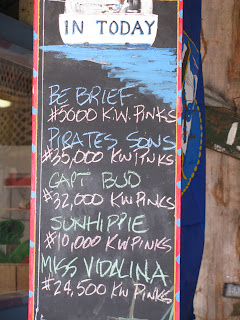 IN TODAY
BE BRIEF
#5000 K.W. PINKS
PIRATES SONS
#35,000 KW PINKS
CAPT BUD
#32,000 KW PINKS
SUNHIPPIE
#10,000 KW PINKS
MISS VIDALINA
#24,500 KW PINKS